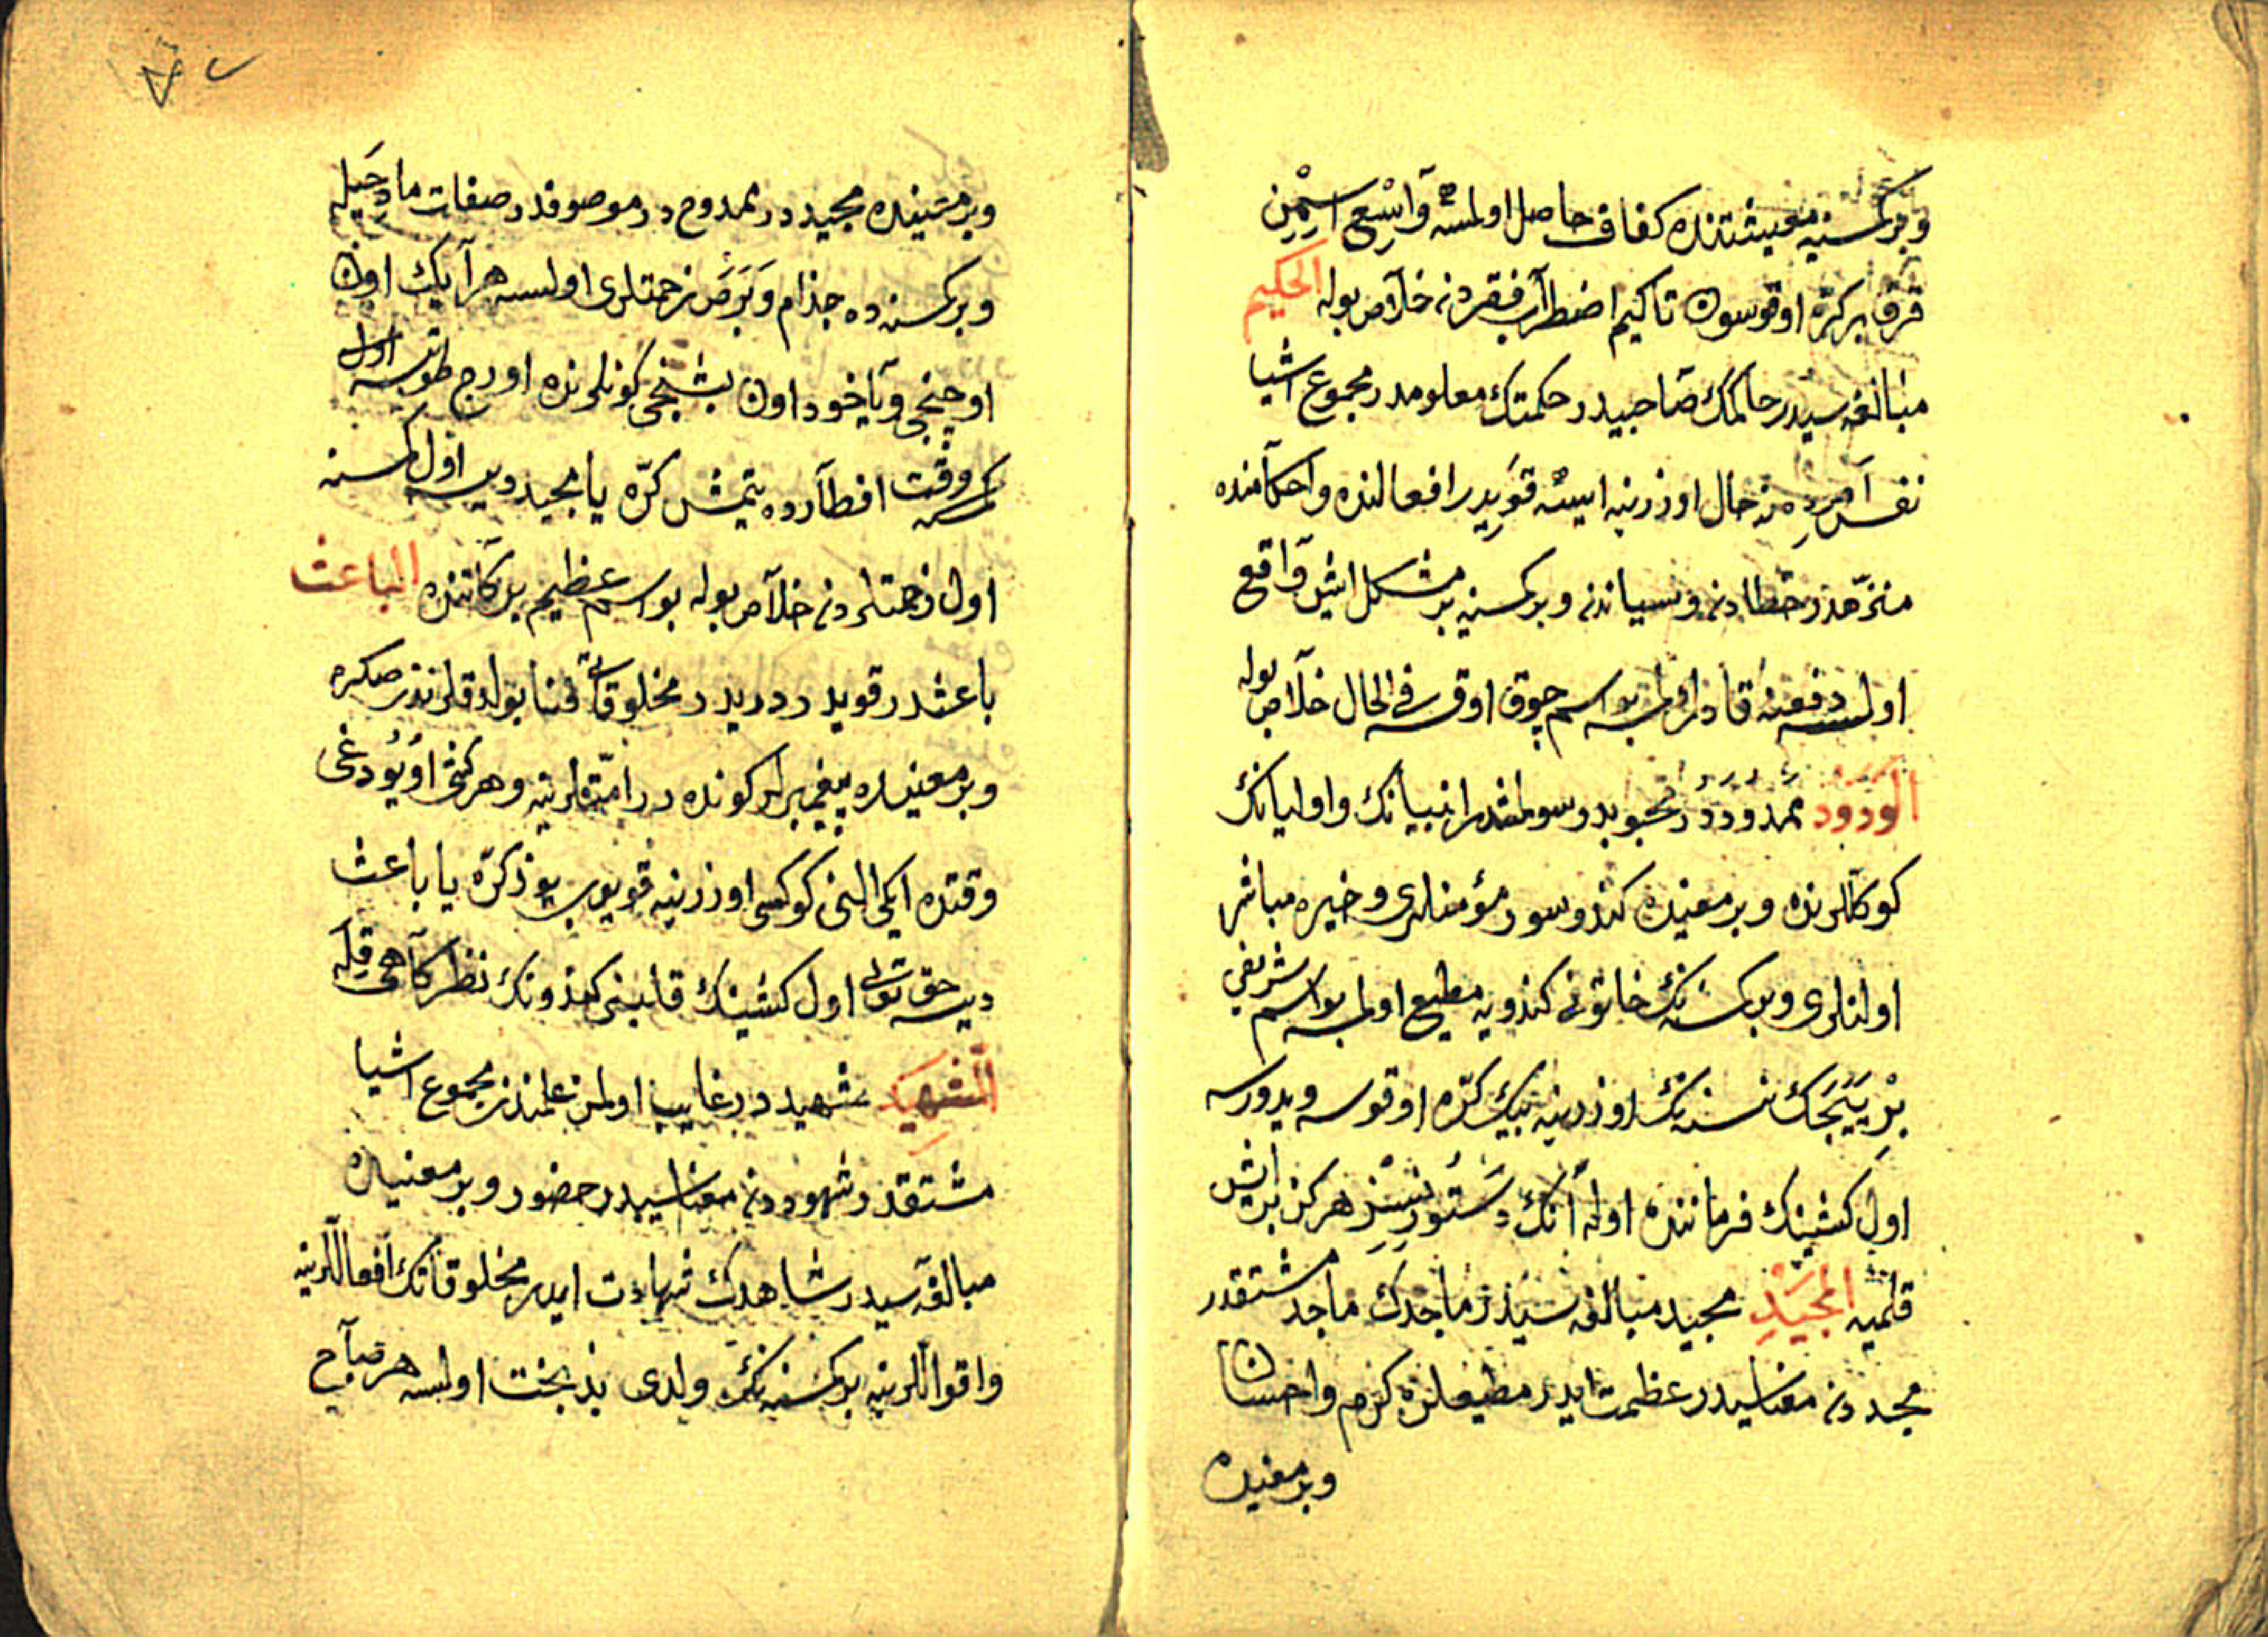 وبر كسنيه معيشتنده كفاف حاصل اولمسه وَاسِعِ اسمن
قرق بر كرّه اوقوسون تاكيم اضطراب فقردنه خلاص بوله الحكيم
مبالغه سيدر حاكمك صاحبيدر حكمتك معلومدر مجموع اشيا
نفس امرده نه حال اوزرنيه ايسه قويدر افعالنده واحكامنده
منزّهدر خطادنه ونسياندنه وبر كسنيه بر مشكل ايش واقع
اولسه دفعنه قادر اولمسه بو اسم چوق اوقسه فى الحال خلاص بوله
الودود ممدودور محبوبدر سولمشدر انبيانك واوليانك
كوكللرنده وبر معنيده كندو سور مؤمنلرى وخيره مباشر
اولنلرى وبر كسنه نك خاتونى كندويه مطيع اولمسه بو اسم شريفى
بر ييجك نسنه نك اوزرينه بيك كرّه اوقوسه ويدورسه
اول كشينك فرماننده اوله انك دستورنسز هركز بر ايش
قلميه المجيد مجيد مبالغه سيدر ماجدك ماجد مشتقدر
مجددنه معناسيدر عظمت ايدر مطيعلره كرم واحسان
وبر معنيده
وبر معنيده مجيددر ممدوح در موصوفدر صفات مادحيله
وبر كسنه ده جذام وَبَرَص زحمتلرى اولسه هر آيك اون
اوچنجى ويا خود اون بشنجى كونلرنده اورج طوتسه اول
كمسه وقت افطارده يتمش كرّه يا مجيد ديسه اول كسنه
اول زحمتلردنه خلاص بوله بو اسم عظيم بركاتنده الباعث
باعثدر قويدر دريدر مخلوقاتى فنا بولدقلرندن صكره
وبر معنيده پيغمبرلر كوندهرر امّتلرينه وهر كشى اويودغى
وقتده ايكى النى كوكسى اوزرينه قويوب يوز كرّه يا باعث
ديسه حق تعالى اول كشينك قلبنى كندونك نظركاهى قله
الشهيد شهيددر غايب اولمز علمندن مجموع اشيا
مشتقدر شهوددنه معناسيدر حضور وبر معنيده
مبالغه سيدر شاهدك شهادت ايدر مخلوقاتك افعاللرينه
واقواللرينه بر كسنه نك ولدى بدبخت اولسه هر صباح